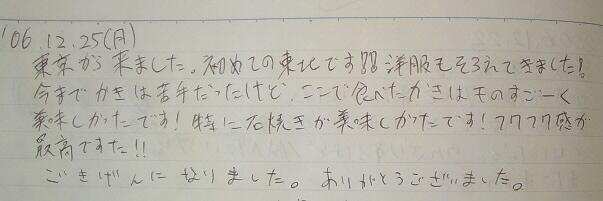 '06.12.25(月)
東京から来ました。初めての東北です!! 洋服もそろえてきました!
今までかきは苦手だったけど、ここで食べたかきはものすごーく
美味しかったです! 特に石焼きが美味しかったです! フワフワ感が
最高でした!!
ごきげんになりました。ありがとうございました。